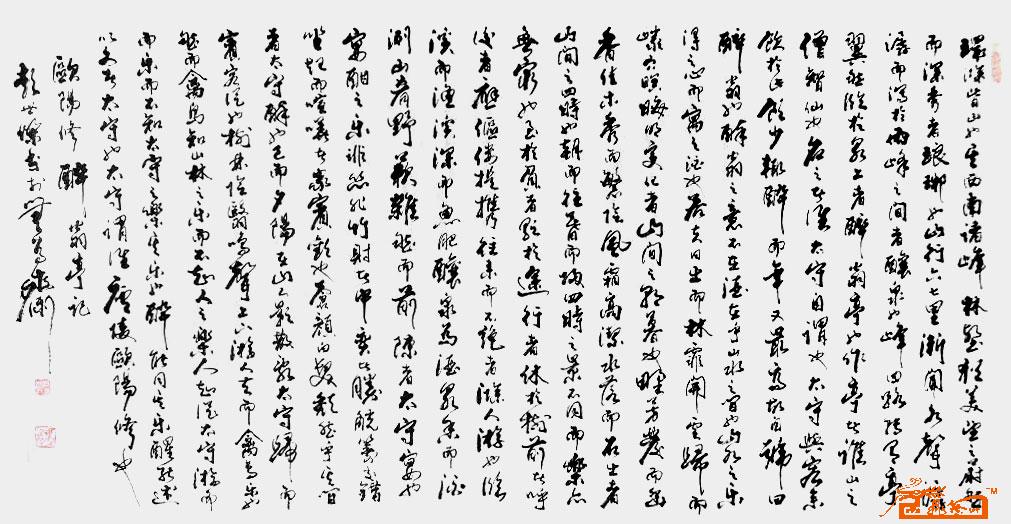 環滁皆山也其西南諸峰林壑尤美望之蔚然
而深秀者琅琊也山行六七里漸聞水聲潺
潺而瀉於兩峰之間者釀泉也峰回路轉有亭
翼然臨於泉上者醉翁亭也作亭者誰山之
僧智仙也名之者誰太守自謂也太守與客來
飲於此飲少輒醉而年又最高故自號曰
醉翁也醉翁之意不在酒在乎山水之間也山水之樂
得之心而寓之酒也若夫日出而林霏開雲歸而
巖穴暝晦明變化者山間之朝暮也野芳發而幽
香佳木秀而繁陰風霜高潔水落而石出者
山間之四時也朝而往暮而歸四時之景不同而樂亦
無窮也至於負者歌於途行者休於樹前者呼
後者應傴僂提攜往來而不絕者滁人遊也臨
溪而漁溪深而魚肥釀泉為酒泉香而酒
洌山肴野蔌雜然而前陳者太守宴也
宴酣之樂非絲非竹射者中弈者勝觥籌交錯
坐起而喧嘩者衆賓歡也蒼顏白髮頹然乎其間
者太守醉也已而夕陽在山人影散亂太守歸而
賓客從也樹林陰翳鳴聲上下遊人去而禽鳥樂
然而禽鳥知山林之樂而不知人之樂人知從太守遊而
而樂而不知太守之樂其樂也醉能同其樂醒能述
以文者太守也太守謂誰廬陵歐陽修也
歐陽修 醉翁亭記
彭世 書於